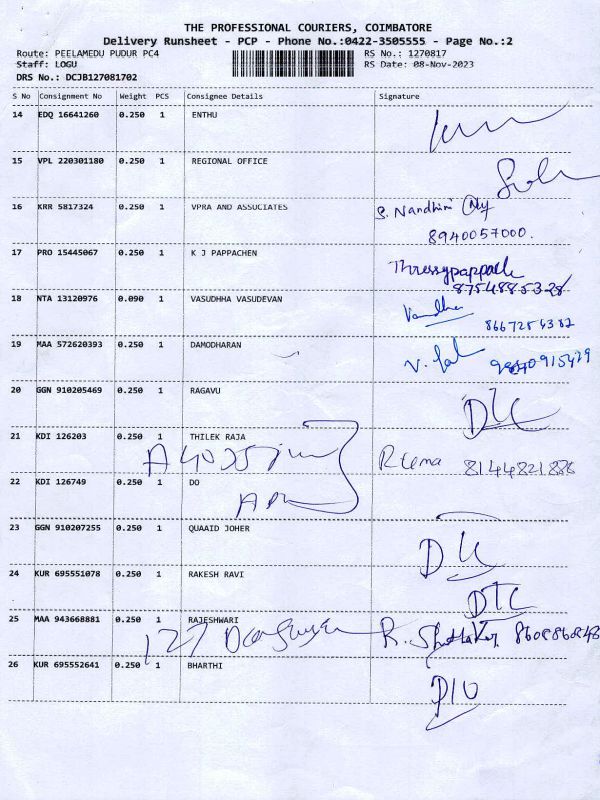 THE PROFESSIONAL COURIERS, COIMBATORE
Delivery Runsheet - PCP - Phone No.:0422-3505555 - Page No.:2
Route: PEELAMEDU PUDUR PC4 RS No.: 1270817
Staff: LOGU RS Date: 08-Nov-2023
DRS No.: DCJB127081702
S No Consignment No Weight PCS Consignee Details Signature
14 EDQ 16641260 0.250 1 ENTHU
15 VPL 220301180 0.250 1 REGIONAL OFFICE
16 KRR 5817324 0.250 1 VPRA AND ASSOCIATES S. Nandhini
8940057000.
17 PRO 15445067 0.250 1 K J PAPPACHEN
8754885328
18 NTA 13120976 0.090 1 VASUDHHA VASUDEVAN
8667254382
19 MAA 572620393 0.250 1 DAMODHARAN
20 GGN 910205469 0.250 1 RAGAVU
21 KDI 126203 0.250 1 THILEK RAJA
8144821886
22 KDI 126749 0.250 1 DO
23 GGN 910207255 0.250 1 QUAAID JOHER
24 KUR 695551078 0.250 1 RAKESH RAVI
25 MAA 943668881 0.250 1 RAJESHWARI
26 KUR 695552641 0.250 1 BHARTHI